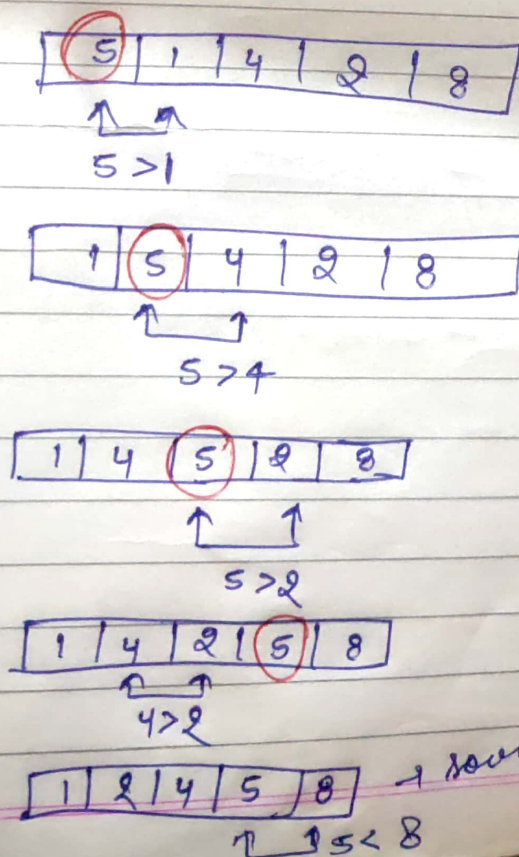 5 1 4 2 8
5 > 1
1 5 4 2 8
5 > 4
1 4 5 2 8
5 > 2
1 4 2 5 8
4 > 2
1 2 4 5 8 →
5 < 8